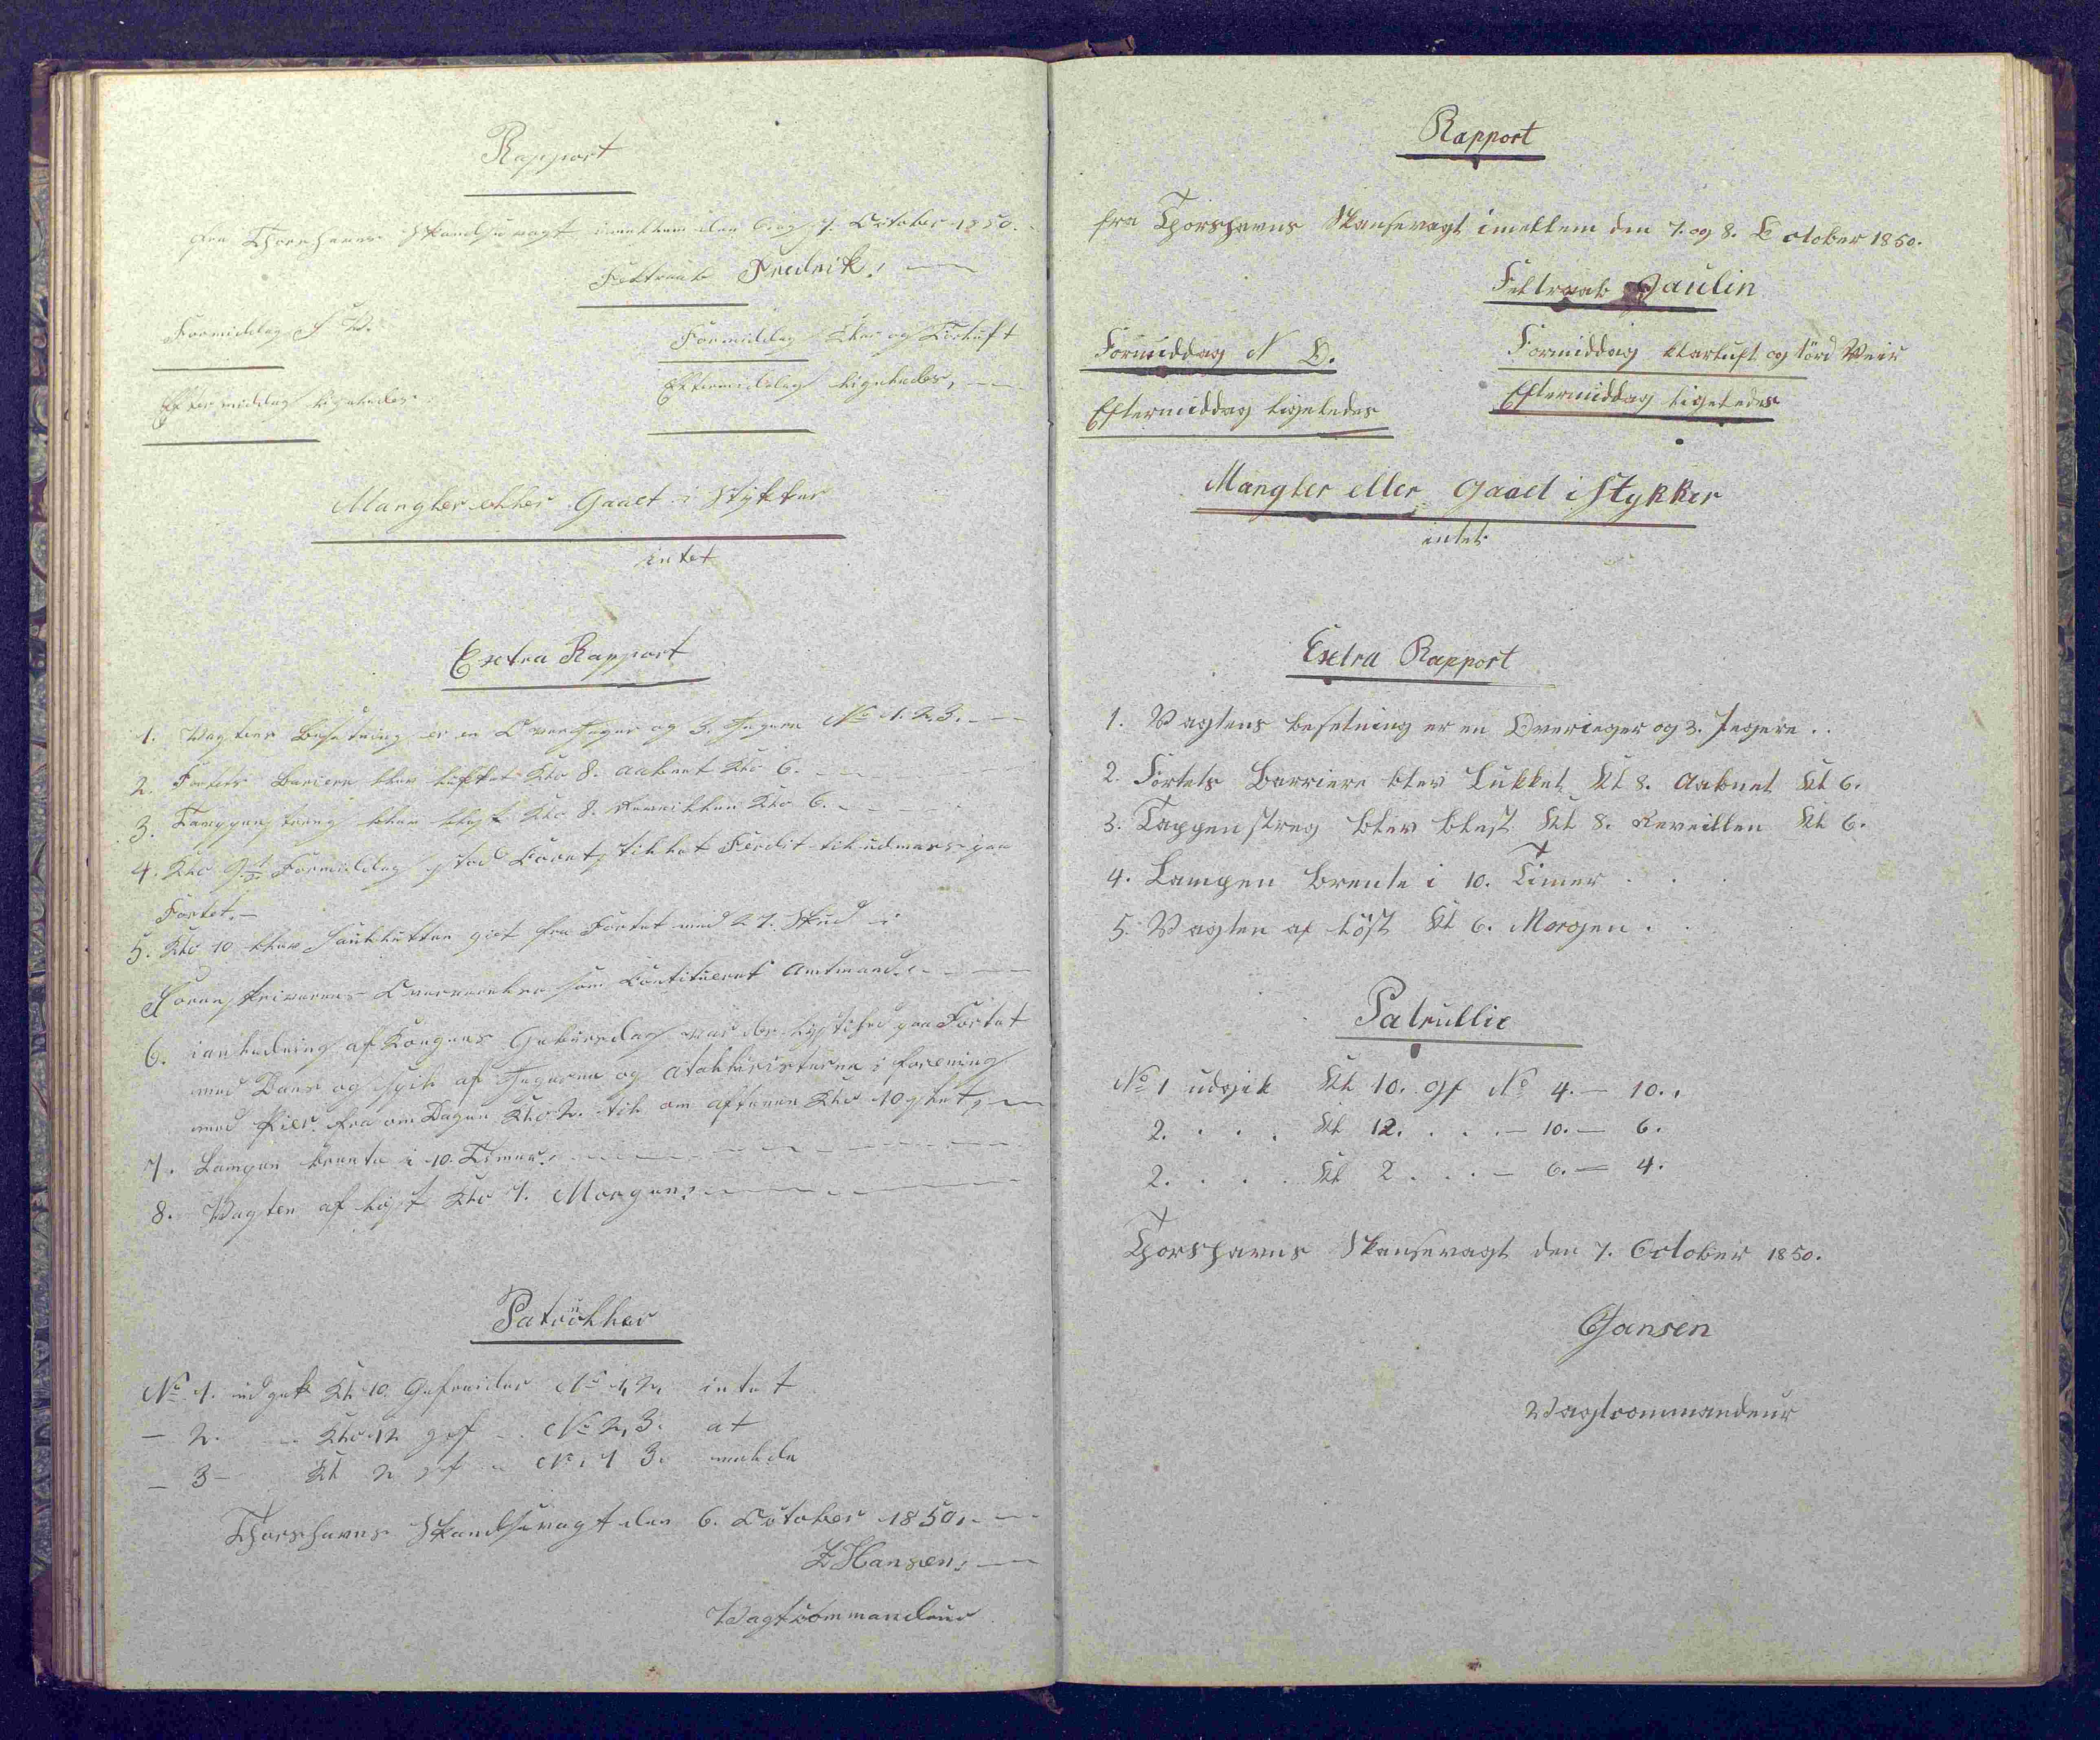 Rapport
fra Thorshavns Skandsevagt imellem den 6 og 7. October 1850.
Feltraab Fredrik.
Formiddag S V.
Formiddag Klar og Törluft
Eftermiddag ligeledes
Eftermiddag ligeledes,
Mangler eller Gaaet i Stykker
intet
Extra Rapport
1. Vagtens Besetning er en Overjeger og 3. Jegere No 1. 2. 3.
2. Fortets Bariere blev lukket Klo 8. aabnet Klo 6.
3. Tappenstreng blev blest Klo 8. Reveillen Klo 6.
4. Klo 9½ Formiddag stod Coret til udmars paa
Fortet.
5. Klo 10 blev Saluten givt fra Fortet med 27. Skud
Sorenskriveren som Constitueret Amtmand.
6. i anledning af Kongens Geburtsdag var der Lystighed paa Fortet
med Dans og Spil af Jegerne og i forening
med Piger fra om Dagen Klo 2. til om aftenen Klo 10 slet,
7. Lampen brente i 10. Timer.
8. Vagten af löst Klo 7. Morgen.
Patruller
No 1. udgik Kl. 10. Gefreider No 1, 2, intet
— 2. Klo 12 gef No 2, 3. at
— 3 — Kl 2 gf No 1 3. melde
Thorshavns Skandsevagt den 6. October 1850.
Z Hansen.
Vagtcommandeur
Rapport
fra Thorshavns Skansevagt imellem den 7. og 8. October 1850.
Feltraab Paulin
Formiddag N O.
Formiddag klarluft og törd Veir
Eftermiddag ligeledes
Eftermiddag ligeledes
Mangler eller Gaaet i Stykker
intet
Extra Rapport
1. Vagtens besetning er en Overieger og 3. Jegere..
2. Fortets Barriere blev Lukket Kl 8. Aabnet Kl 6.
3. Tappenstreg blev blest Kl 8. Reveillen Kl 6.
4. Lampen brente i 10. Timer
5. Vagten af löst Kl 6. Morgen.
Patrullie
No 1 udgik Kl 10. gf No 4. — 10.
2. . . . Kl 12. . . . — 10. — 6.
2. . . . Kl 2 . . . — 6. — 4.
Thorshavns Skansevagt den 7. October 1850.
Jansen
Vagtcommandeur